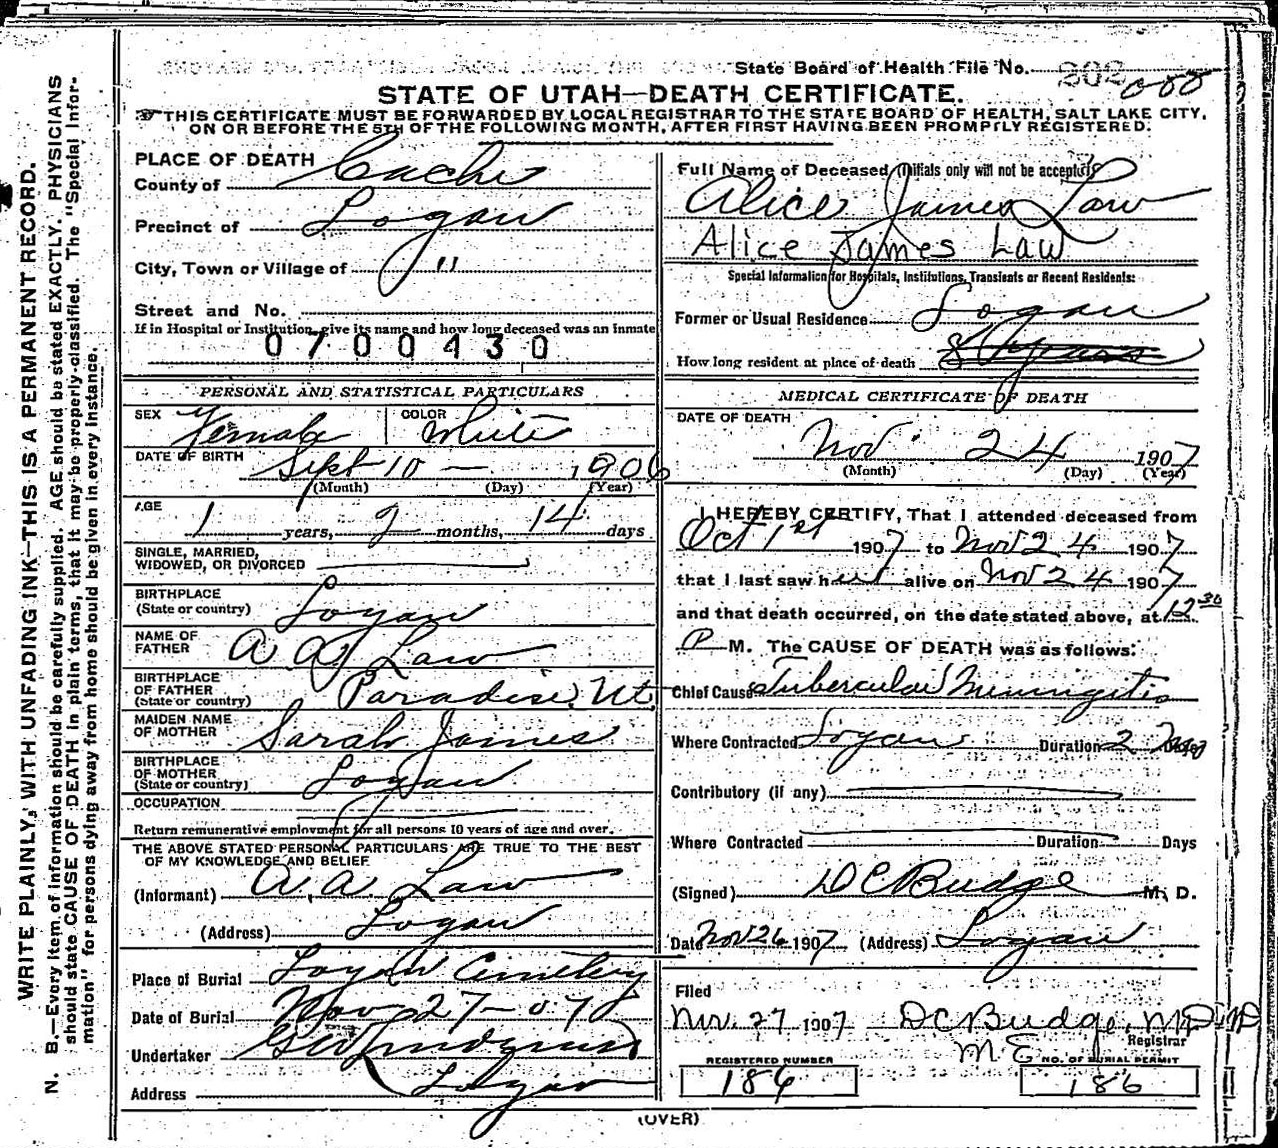 State Board of Health File No. 202 088
STATE OF UTAH—DEATH CERTIFICATE.
THIS CERTIFICATE MUST BE FORWARDED BY LOCAL REGISTRAR TO THE STATE BOARD OF HEALTH, SALT LAKE CITY,
ON OR BEFORE THE 5TH OF THE FOLLOWING MONTH, AFTER FIRST HAVING BEEN PROMPTLY REGISTERED.
WRITE PLAINLY, WITH UNFADING INK—THIS IS A PERMANENT RECORD.
N. B.—Every item of information should be carefully supplied. AGE should be stated EXACTLY. PHYSICIANS
should state CAUSE OF DEATH in plain terms, that it may be properly classified. The "Special Infor-
mation" for persons dying away from home should be given in every instance.
PLACE OF DEATH
County of Cache
Precinct of Logan
City, Town or Village of "
Street and No.
If in Hospital or Institution, give its name and how long deceased was an inmate
0700430
PERSONAL AND STATISTICAL PARTICULARS
SEX Female COLOR White
DATE OF BIRTH Sept 10 — 1906
(Month) (Day) (Year)
AGE
1 years, 2 months, 14 days
SINGLE, MARRIED,
WIDOWED, OR DIVORCED
BIRTHPLACE
(State or country) Logan
NAME OF
FATHER A A Law
BIRTHPLACE
OF FATHER
(State or country) Paradise Ut.
MAIDEN NAME
OF MOTHER Sarah James
BIRTHPLACE
OF MOTHER
(State or country) Logan
OCCUPATION
Return remunerative employment for all persons 10 years of age and over.
THE ABOVE STATED PERSONAL PARTICULARS ARE TRUE TO THE BEST
OF MY KNOWLEDGE AND BELIEF
(Informant) A. A Law
(Address) Logan
Place of Burial Logan Cemetery
Date of Burial Nov 27-07
Undertaker
Address Logan
Full Name of Deceased (Initials only will not be accepted)
Alice James Law
Alice James Law
Special Information for Hospitals, Institutions, Transients or Recent Residents:
Former or Usual Residence Logan
How long resident at place of death 8 years
MEDICAL CERTIFICATE OF DEATH
DATE OF DEATH
Nov. 24 1907
(Month) (Day) (Year)
I HEREBY CERTIFY, That I attended deceased from
Oct 1st 1907 to Nov 24 1907
that I last saw her alive on Nov 24 1907
and that death occurred, on the date stated above, at 12 30
P M. The CAUSE OF DEATH was as follows:
Chief Cause Tubercular Meningitis
Where Contracted Logan Duration 2
Contributory (if any)
Where Contracted Duration Days
(Signed) D C Budge M. D.
Date Nov 26 1907 (Address) Logan
Filed
Nov. 27 1907 D C Budge, M D
Registrar
M E
REGISTERED NUMBER NO. OF BURIAL PERMIT
186 186
(OVER)